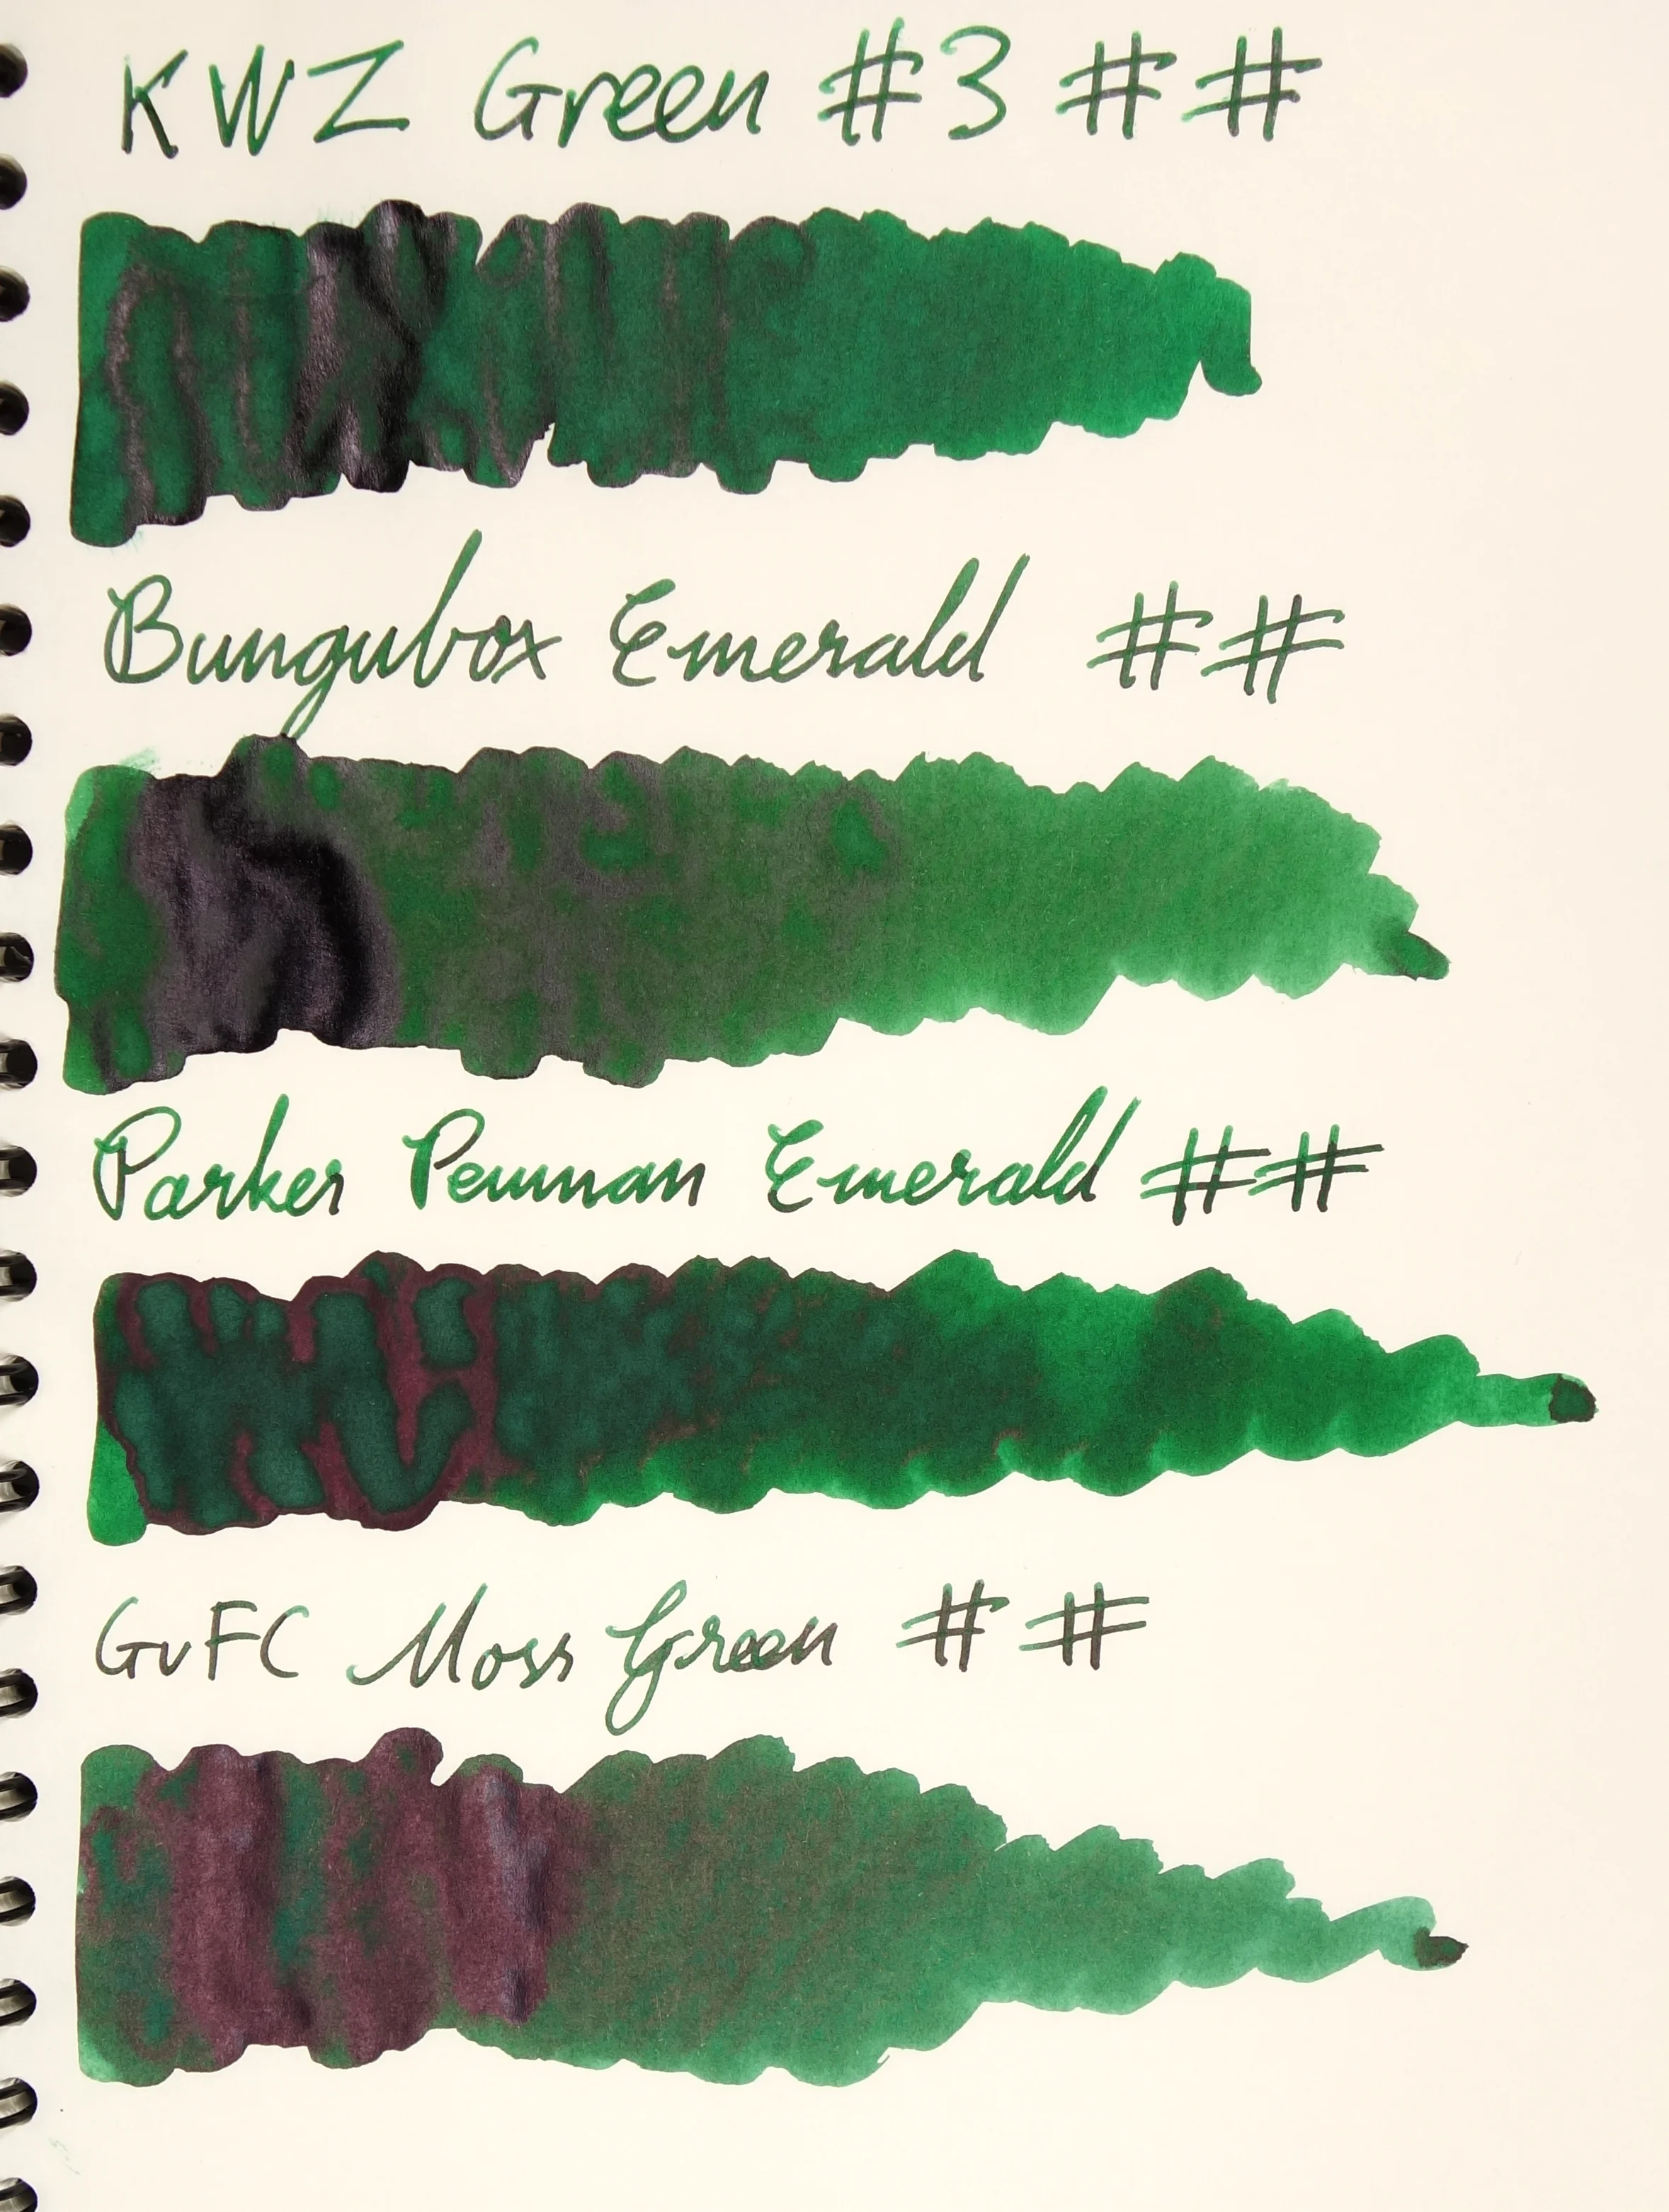 KWZ Green #3 # #
Bungubox Emerald # #
Parker Penman Emerald # #
GvFC Moss Green # #